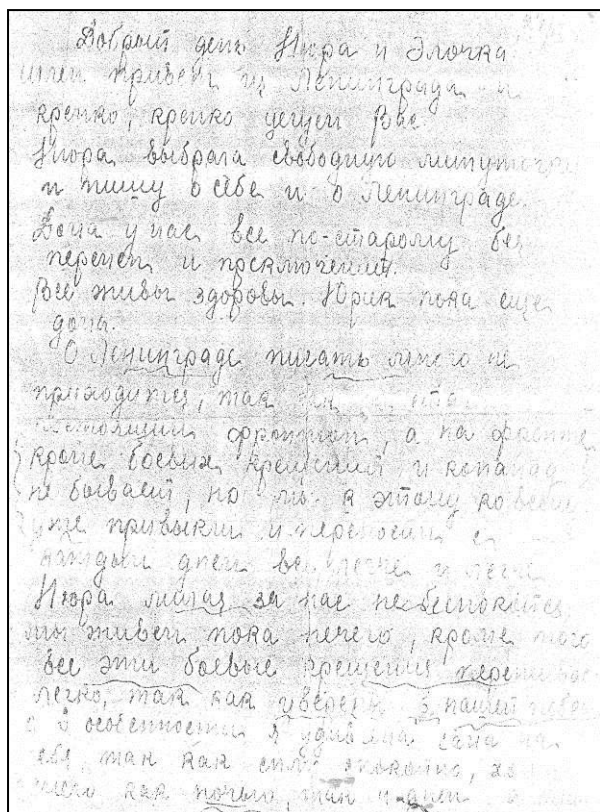 Добрый день Нюра и Элочка
шлем привет из Ленинграда и
крепко, крепко целуем Вас
Нюра, выбрала свободную минуточку
и пишу о себе и о Ленинграде.
Дома у нас все по-старому без
перемен и преключений.
Все живы здоровы. Юрик пока еще
дома.
О Ленинграде писать много не
приходится, так
фронтом, а на фронте
кроме боевых крещений и команд
не бывает, но мы к этому ко всему
уже привыкли и переносим с
каждым днем все легче и легче
Нюра милая за нас не беспокойтесь
мы живем пока нечего, кроме того
все эти боевые крещения
легко, так как уверены в нашей
в особенности я удивлена сама на
себя, так как сплю спокойно,
ночью, так и днем